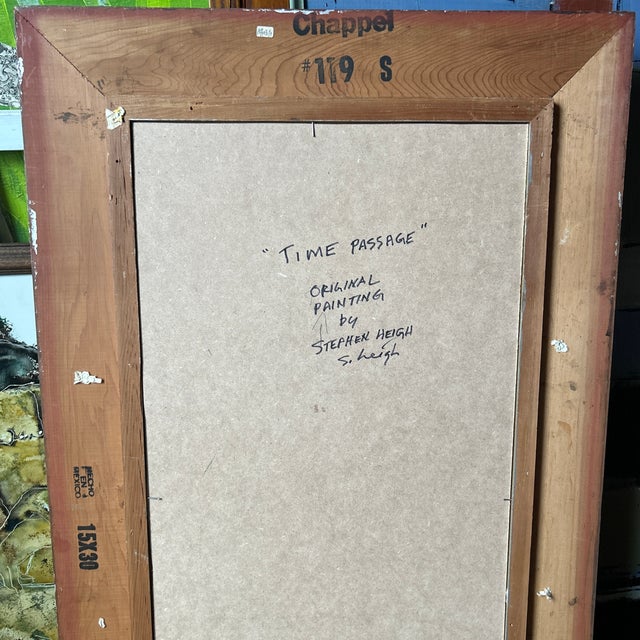 Chappel
#119 S
"TIME PASSAGE"
ORIGINAL
PAINTING
by
STEPHEN HEIGH
S. Heigh
HECHO
EN
MEXICO
15X30